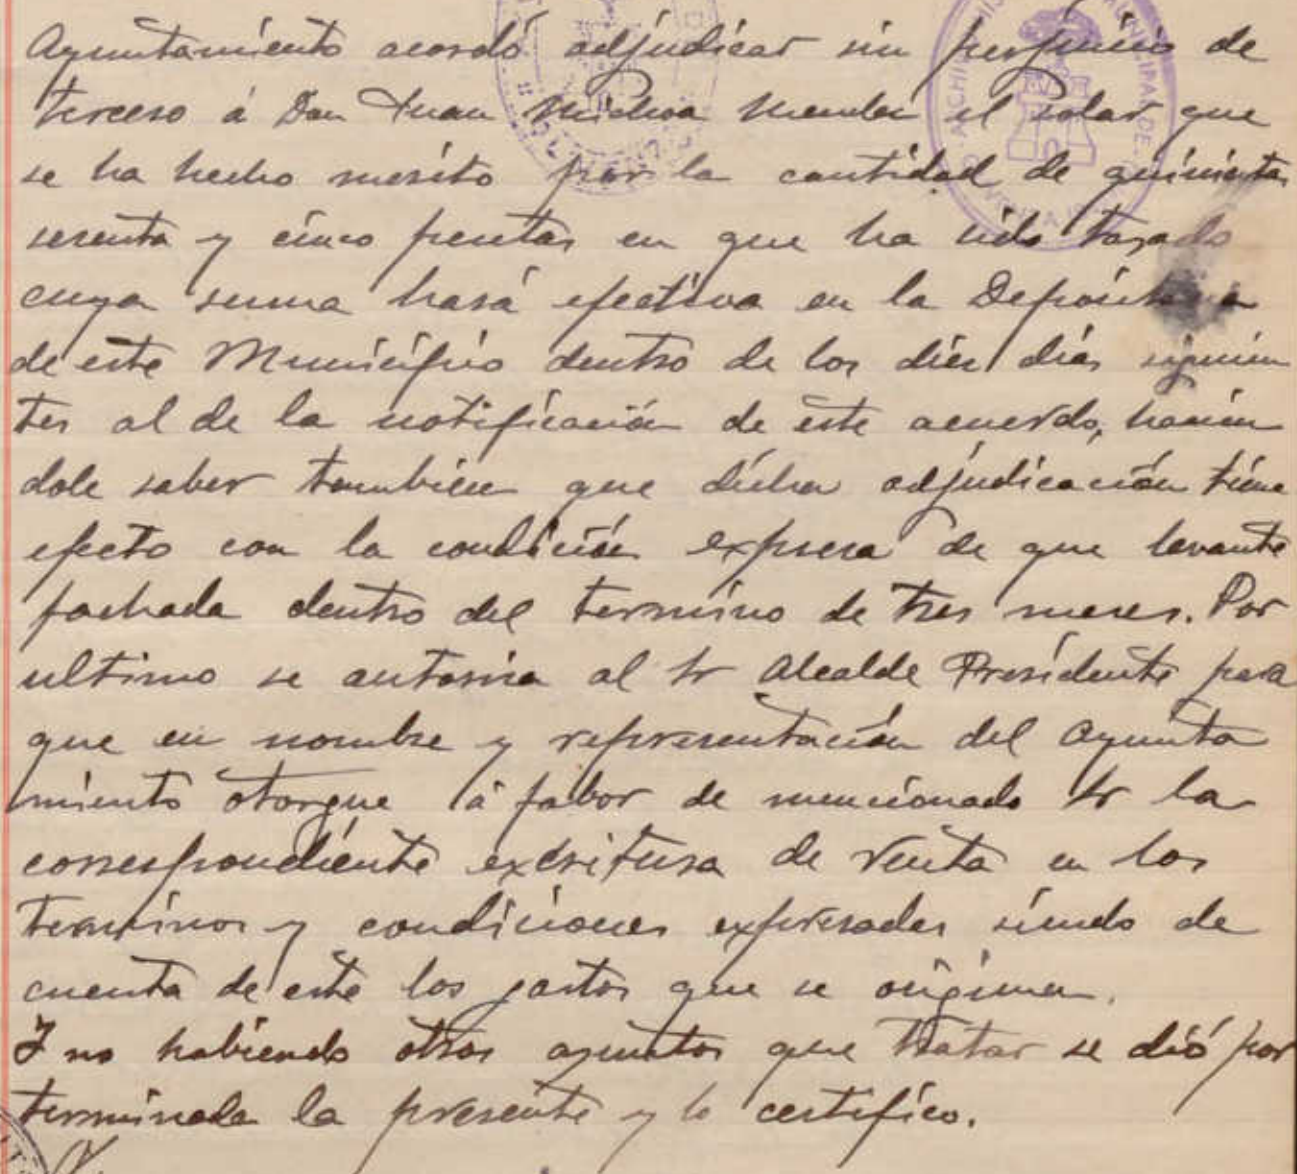 Ayuntamiento acordó adjudicar sin perjuicio de
tercero á Don Juan Michoa Mendez el solar que
se ha hecho merito por la cantidad de quinientas
sesenta y cinco pesetas en que ha sido tasado
cuya suma hará efectiva en la Depositaria
de este Municipio dentro de los diez dias siguien
tes al de la notificación de este acuerdo, hacien
dole saber tambien que dicha adjudicación tiene
efecto con la condición expresa de que levante
fachada dentro del termino de tres meses. Por
ultimo se autoriza al Sr Alcalde Presidente para
que en nombre y representación del Ayunta
miento otorgue á fabor de mencionado Sr la
correspondiente excritura de venta en los
terminos y condiciones expresadas siendo de
cuenta de este los gastos que se originen.
I no habiendo otros asuntos que tratar se dió por
terminada la presente y lo certifico.